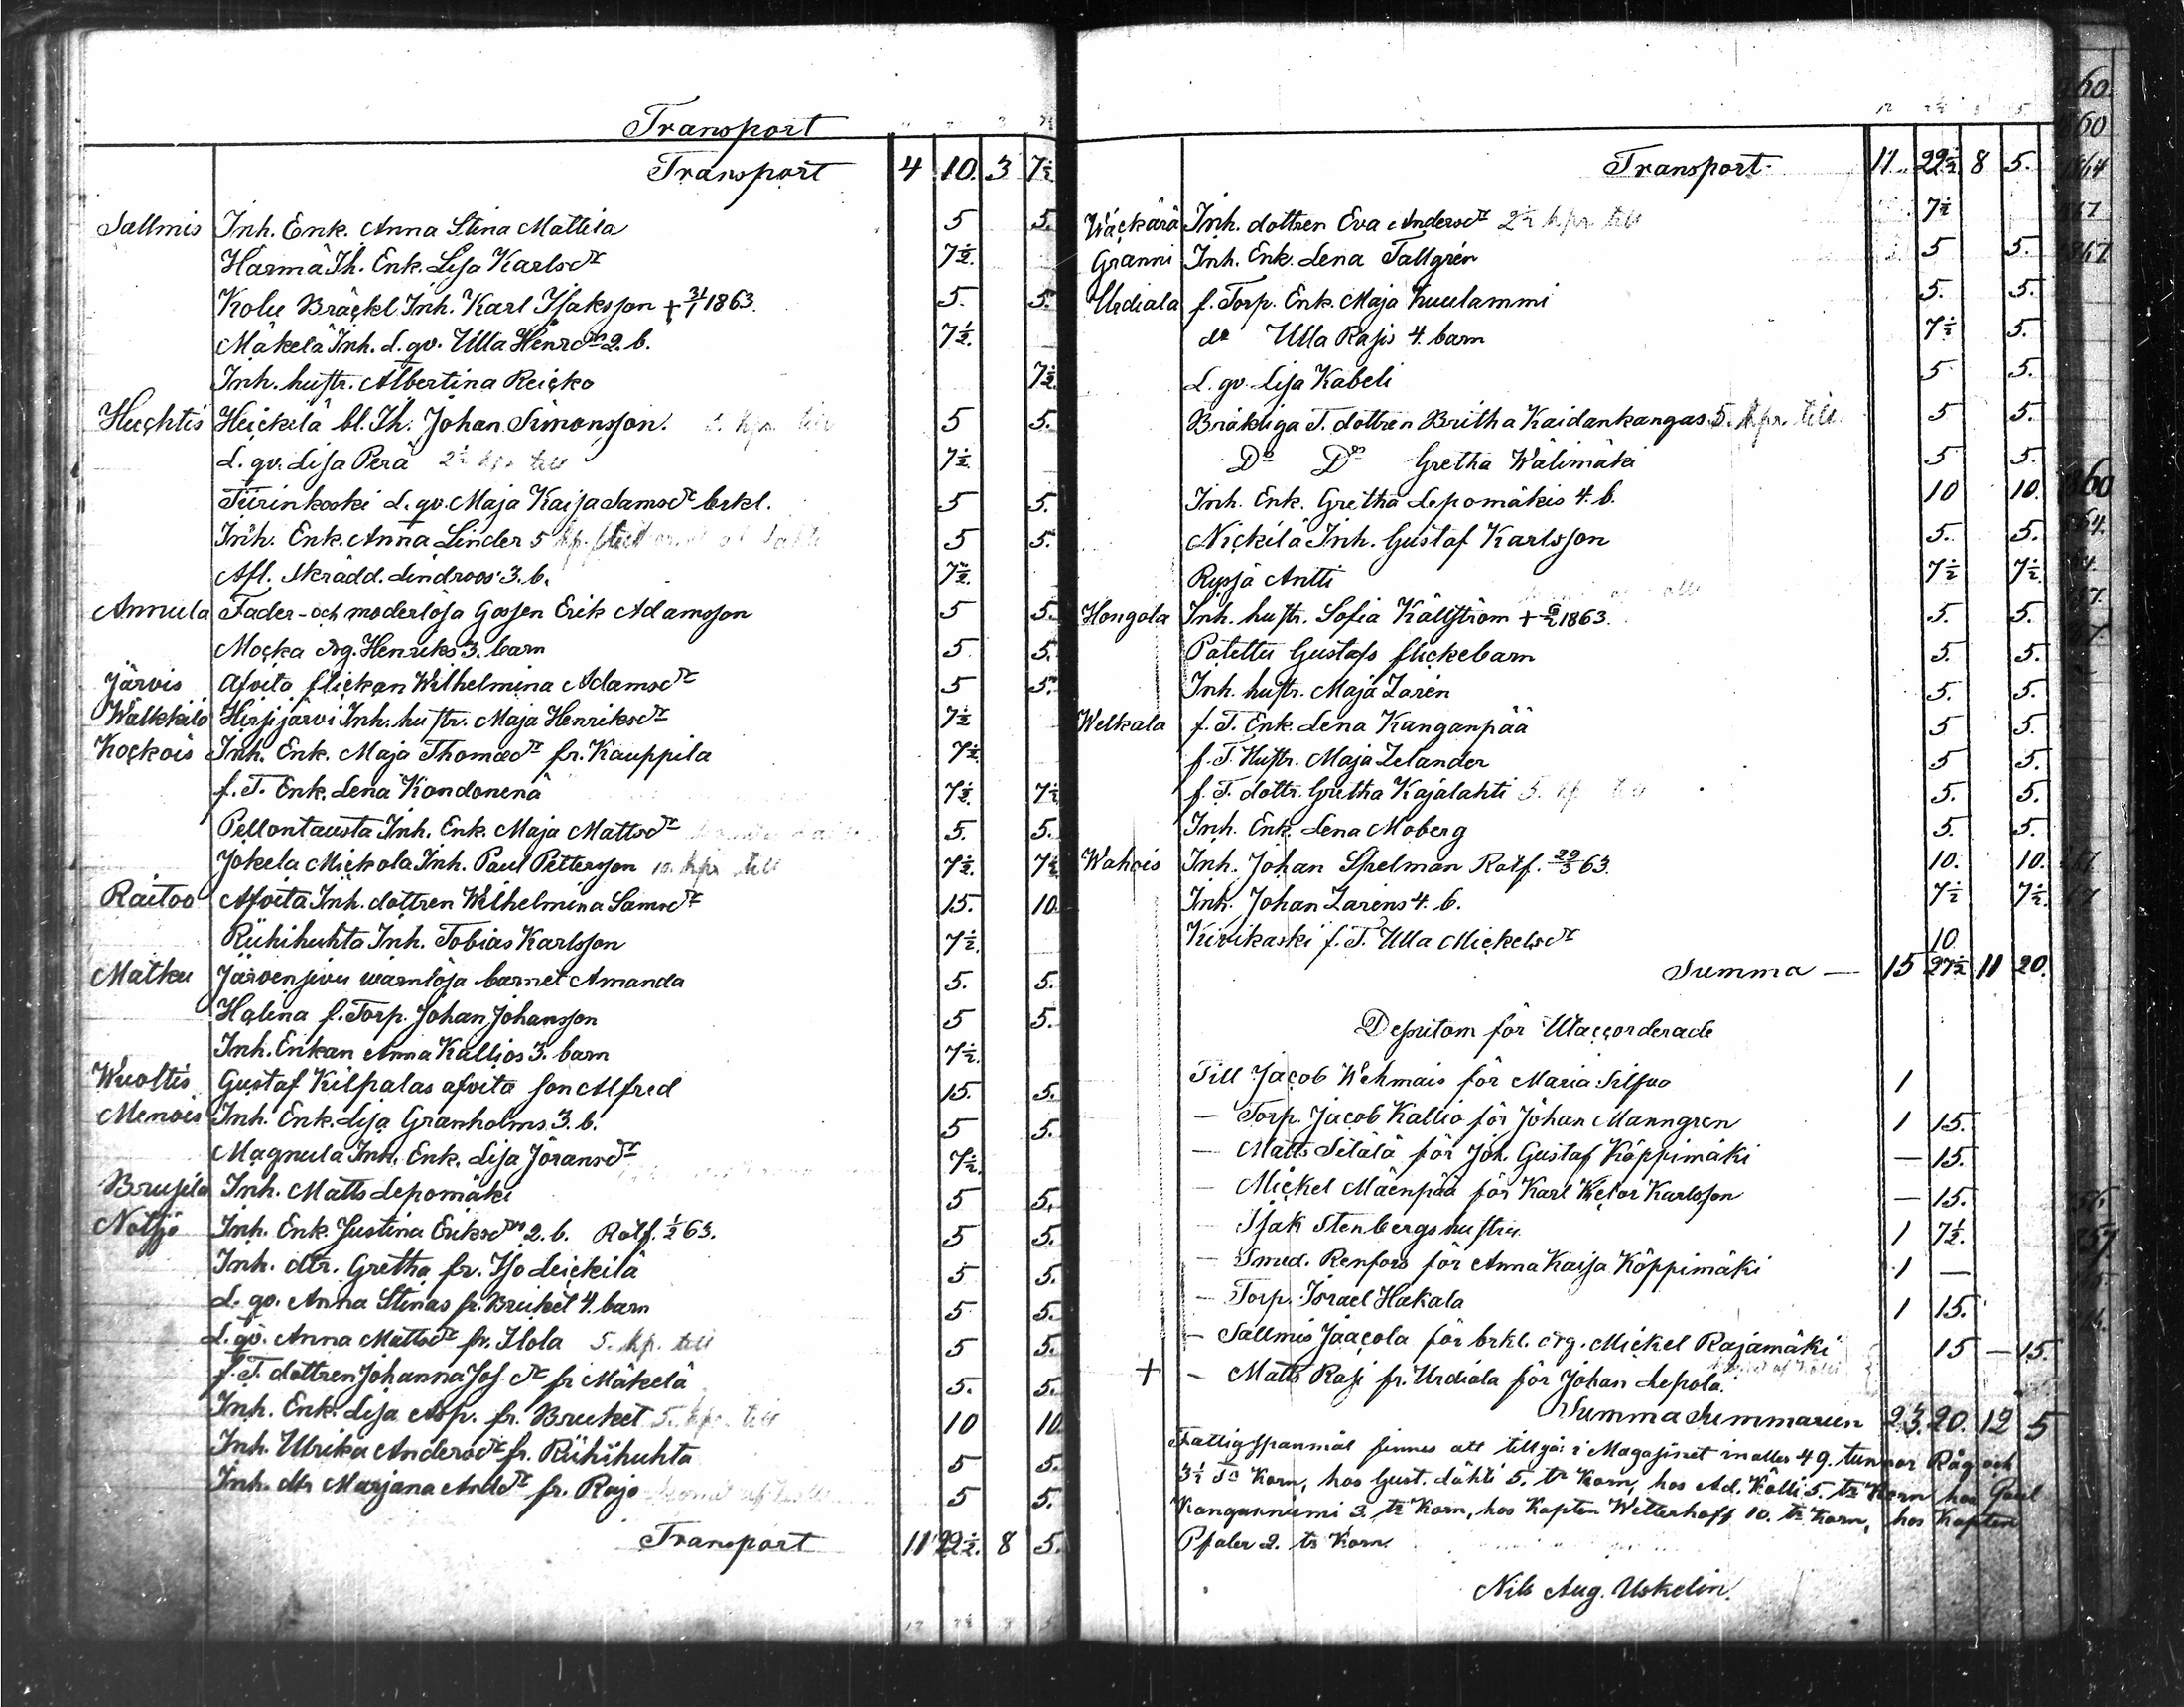 Transport
Transport 4 10. 3 7½
Sallmis Inh. Enk. Anna Stina Mattila 5 5.
Harmå Ih. Enk. Lisa Karlsdr 7½.
Kolu Bräckl Inh. Karl Isaksson + 31/1 1863. 5. 5.
Mäkelä Inh. L. qv. Ulla Henrdrs 2. b. 7½.
Inh. hustr. Albertina Reicko 7½.
Huchtis Heickilä bl. Ih. Johan Simonsson. 5. kpr till 5 5.
L. qv. Lisa Perä 2½ kpr till 7½.
Tiirinkoski L. qv. Maja Kaisa Samsdr brkl. 5 5.
Inh. Enk. Anna Linder 5 kp. 5 5.
Afl. Skrädd. Lindroos 3. b. 7½.
Annula Fader- och moderlösa Gossen Erik Adamsson 5 5.
Mocka drg. Henriks 3. barn 5 5.
Järvis Afvita flickan Wilhelmina Adamsdr 5 5.
Walkkila Hirsijärvi Inh. hustr. Maja Henriksdr 7½
Kockois Inh. Enk. Maja Thomædr fr. Kauppila 7½.
f. T. Enk. Lena Kondonenä 7½. 7½
Pellontausta Inh. Enk. Maja Mattsdr 5. 5.
Jokela Mickola Inh. Paul Pettersson 10. kpr till 7½. 7½
Raitoo Afvita Inh. dottren Wilhelmina Samsdr 15. 10.
Riihihuhta Inh. Tobias Karlsson 7½.
Matku Järvensivu wårnlösa barnet Amanda 5. 5.
Halina f. Torp. Johan Johansson 5 5.
Inh. Enkan Anna Kallios 3. barn 7½.
Wuoltis Gustaf Kilpalas afvita son Alfred 15. 5.
Menois Inh. Enk. Lisa Granholms 3. b. 5 5.
Magnula Inh. Enk. Lisa Jöransdr 7½.
Brusila Inh. Matts Lepomäki 5 5.
Notsjö Inh. Enk. Justina Eriksdrs 2. b. Rotf. 1/2 63. 5 5.
Inh. dtr. Gretha fr. Iso Leickilä 5 5.
L. qv. Anna Stinas fr. Bruket 4. barn 5 5.
L. qv. Anna Mattsdr fr. Ilola 5. kp. till 5 5.
f. T. dottren Johanna Jos. dr fr Mäkelä 5. 5.
Inh. Enk. Lisa Asp. fr. Bruket 5. kpr till 10 10.
Inh. Ulrika Andersdr fr. Riihihuhta 5 5.
Inh. dtr Marjana Anddr fr. Rajo 5 5.
Transport 11 22½. 8 5.
Transport 11. 22½ 8 5.
Wäckärä Inh. dottren Eva Andersdr 2½ kpr till 7½
Granni Inh. Enk. Lena Tallgrén 5 5.
Urdiala f. Torp. Enk. Maja Kuulammi 5. 5.
do Ulla Rasis 4. barn 7½ 5.
L. qv. Lisa Kabeli 5 5.
Bräkliga T. dottren Britha Kaidankangas 5. kpr. till 5 5.
Do Do Gretha Wälimäki 5 5.
Inh. Enk. Gretha Lepomäkis 4. b. 10 10.
Nickilä Inh. Gustaf Karlsson 5. 5.
Ryssä Antti 7½ 7½
Hongola Inh. hustr. Sofia Källström + 1863. 5. 5.
Patettu Gustafs flickebarn 5. 5.
Inh. hustr. Maja Zarén 5. 5.
Welkala f. T. Enk. Lena Kanganpää 5 5.
f. T. Hustr. Maja Zelander 5 5.
f. T. dottr. Gretha Kajalahti 5. kp. till 5. 5.
Inh. Enk. Lena Moberg 5. 5.
Wahois Inh. Johan Spelman Rotf. 20/3 63. 10. 10.
Inh. Johan Zarens 4. b. 7½ 7½.
Kivikaski f. T. Ulla Mickelsdr 10
Summa — 15 27½ 11 20.
Desutom för Utaccorderade
Till Jacob Wehmais för Maria Silfva 1
— Torp. Jacob Kallio för Johan Manngren 1 15.
— Matts Sitälä för Joh. Gustaf Köppimäki — 15.
— Mickel Mäenpää för Karl Victor Karlsson — 15.
— Isak Stenbergs hustru 1 7½.
— Smed. Renfors för Anna Kaisa Köppimäki 1 —
— Torp. Israel Hakala 1 15.
— Sallmis Jaacola för brkl. drg. Mickel Rajamäki 15 — 15.
+ — Matts Rasi fr. Urdiala för Johan Lepola.
Summa Summarum 23. 20. 12 5
Fattigspanmål finnes att tillgå: i Magasinet inalles 49. tunnor Råg och
3½ Tr Korn, hos Gust. Lähti 5. tr Korn, hos Ad. Kölli 5. tr Korn hos Paul
Kangasniemi 3. tr Korn, hos Kapten Wetterhoff 10. tr Korn, hos Kapten
Pfaler 2. tr Korn.
Nils Aug. Uskelin.